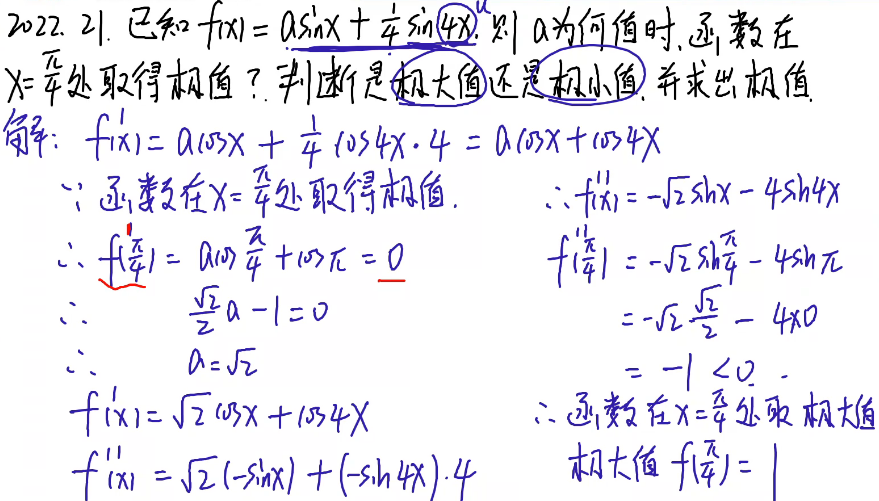 2022. 21. 已知 f(x) = asinx + 1/4 sin 4x. 则 a为何值时, 函数在
x=π/4处取得极值? 判断是极大值还是极小值, 并求出极值.
解: f'(x) = acosx + 1/4 cos4x·4 = acosx + cos4x
∵ 函数在x=π/4处取得极值.
∴ f'(π/4) = acosπ/4 + cosπ = 0
∴ √2/2 a - 1 = 0
∴ a = √2
f'(x) = √2 cosx + cos4x
f''(x) = √2(-sinx) + (-sin4x)·4
∴ f''(x) = -√2 sinx - 4sin4x
f''(π/4) = -√2 sinπ/4 - 4sinπ
= -√2 √2/2 - 4×0
= -1 < 0.
∴ 函数在x=π/4处取极大值
极大值 f(π/4) = 1